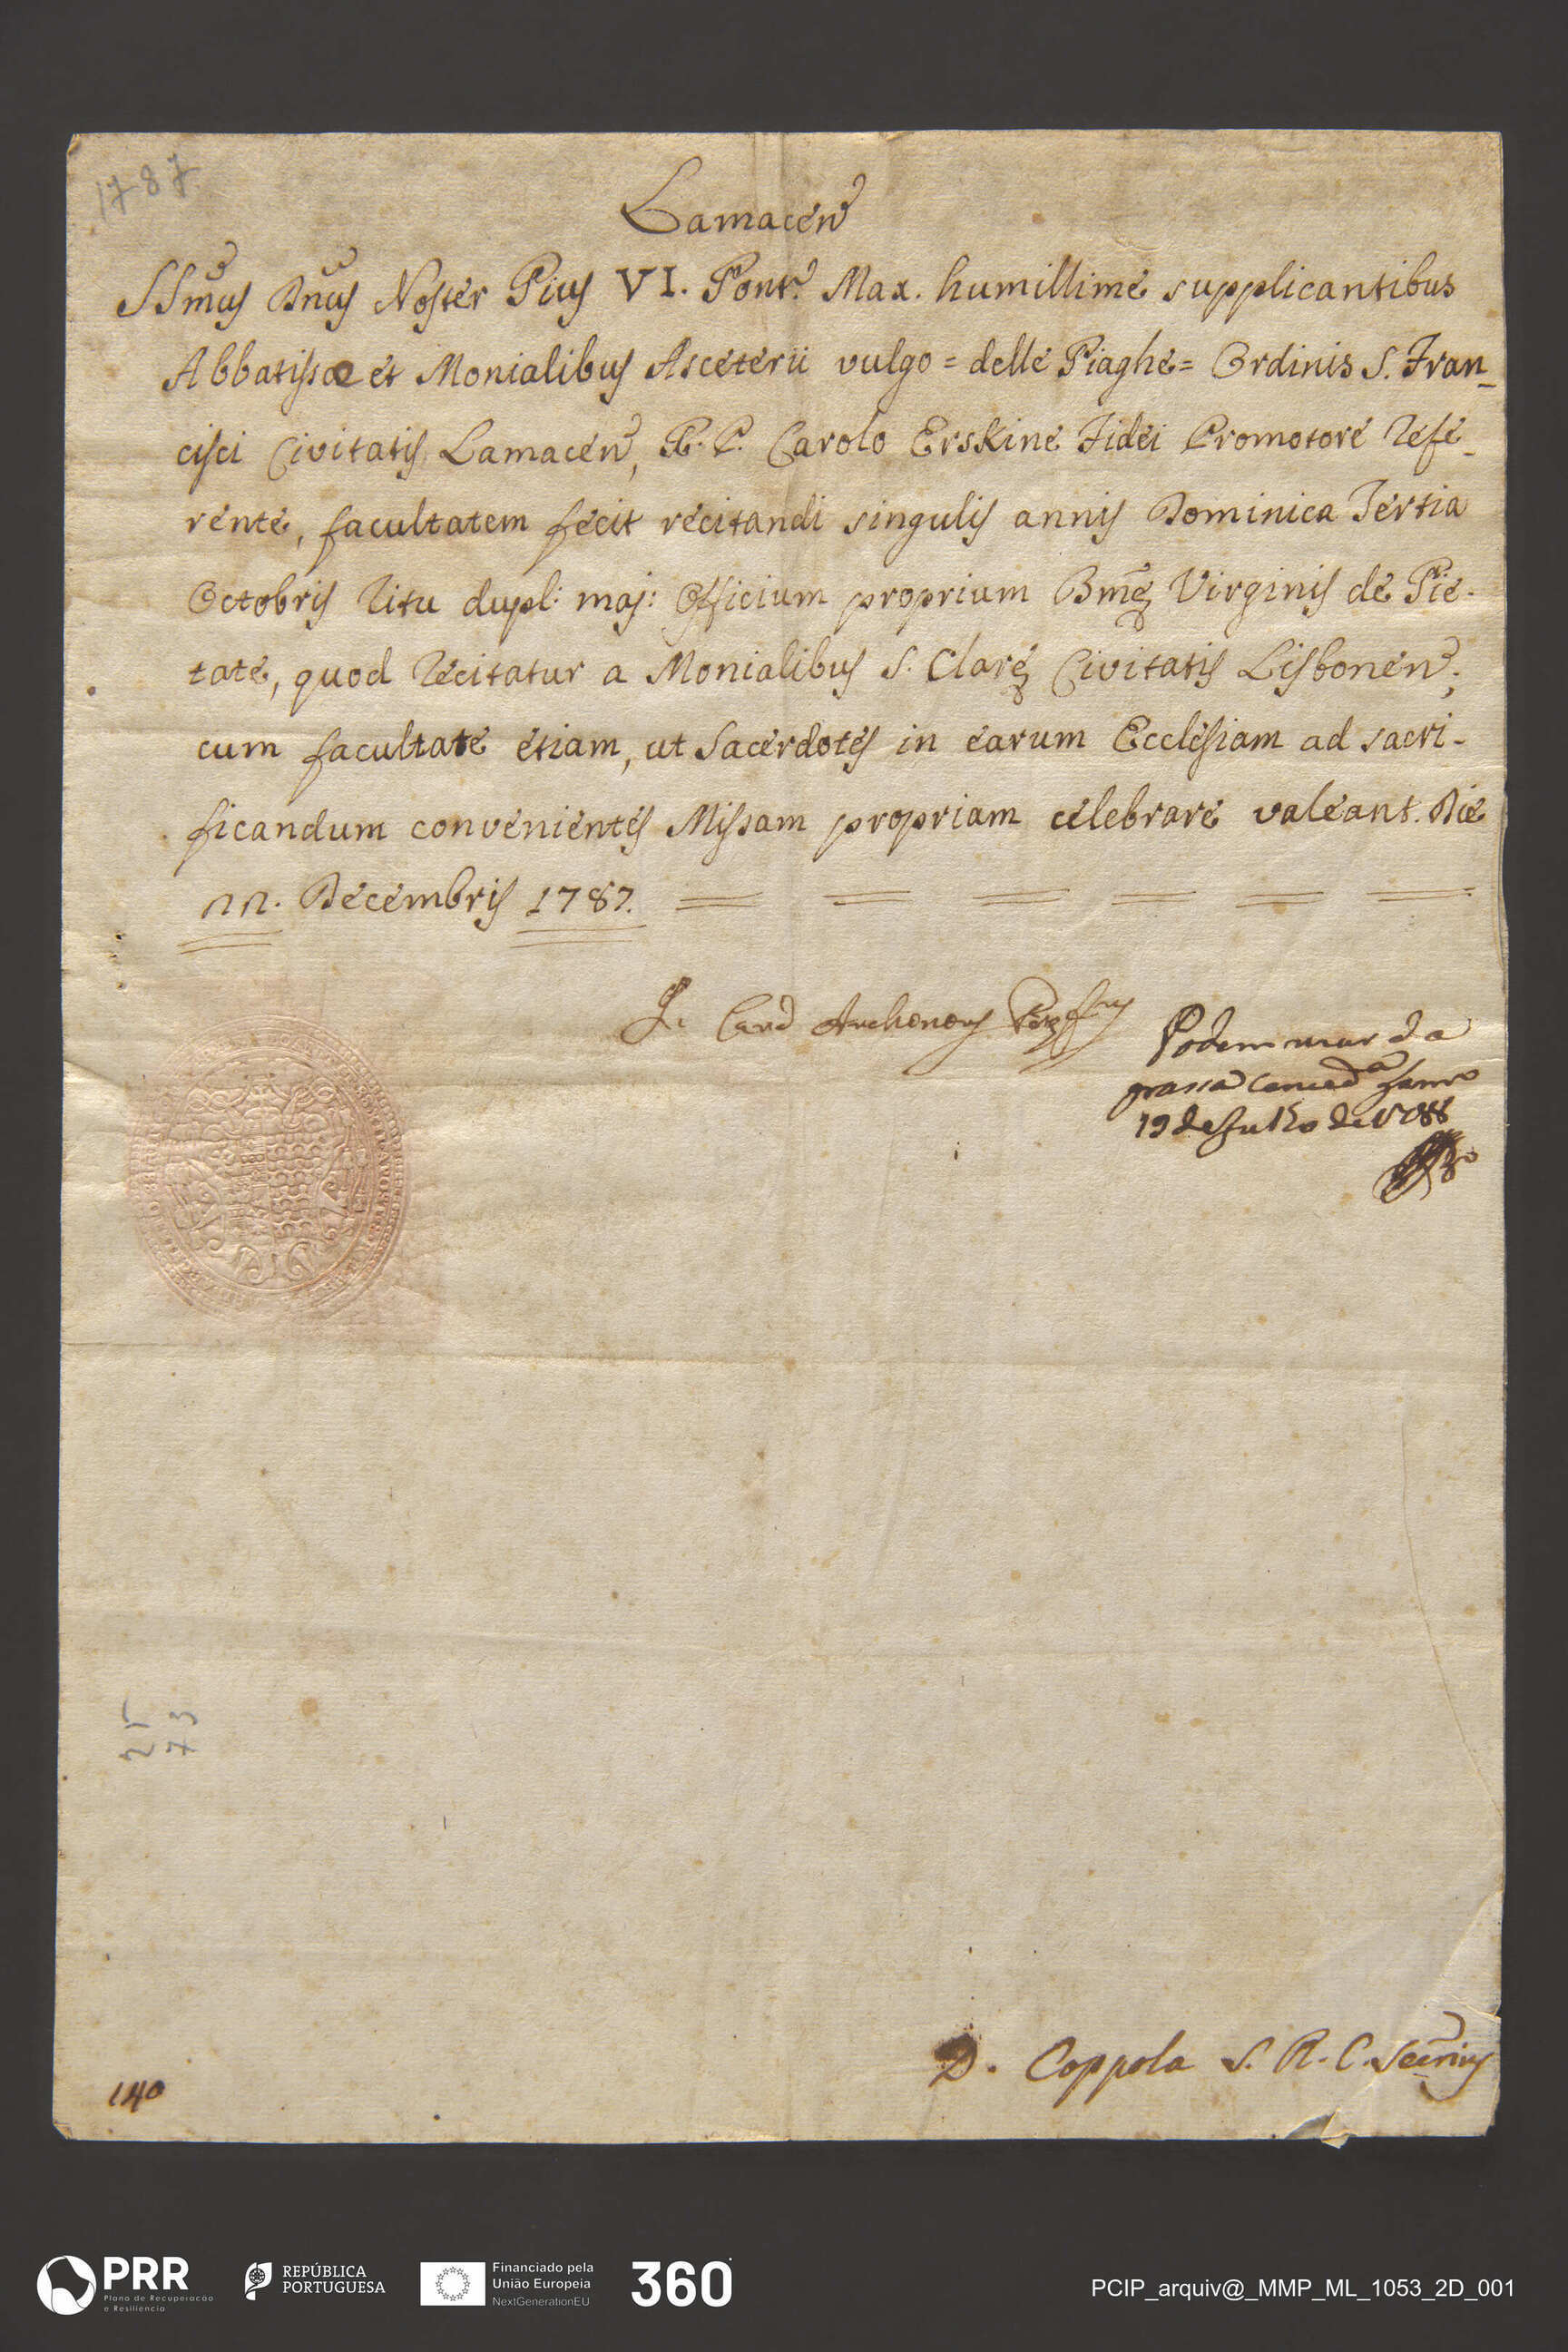 1787
Lamacen̄
SSm̃us Dñus Noster Pius VI. Pont. Max. humillime supplicantibus
Abbatissæ et Monialibus Asceterii vulgo = delle Piaghe = Ordinis S. Fran_
cisci Civitatis Lamacen̄, R. P. Carolo Erskine Fidei Promotore Refe_
rente, facultatem fecit recitandi singulis annis Dominica Tertia
Octobris Ritu dupl: maj: Officium proprium Bm̃ę Virginis de Pie-
tate, quod recitatur a Monialibus S. Clarę Civitatis Lisbonen̄;
cum facultate etiam, ut Sacerdotes in earum Ecclesiam ad sacri-
ficandum convenientes Missam propriam celebrare valeant. Die
22. Decembris 1787.
Card Archonous
Podem uzar da
grassa conced.a
19 de Julho de 1788
25
73
D. Coppola S. R. C. Secrius
140
PRR
Plano de Recuperação
e Resiliência
REPÚBLICA
PORTUGUESA
Financiado pela
União Europeia
NextGenerationEU
360
PCIP_arquiv@_MMP_ML_1053_2D_001